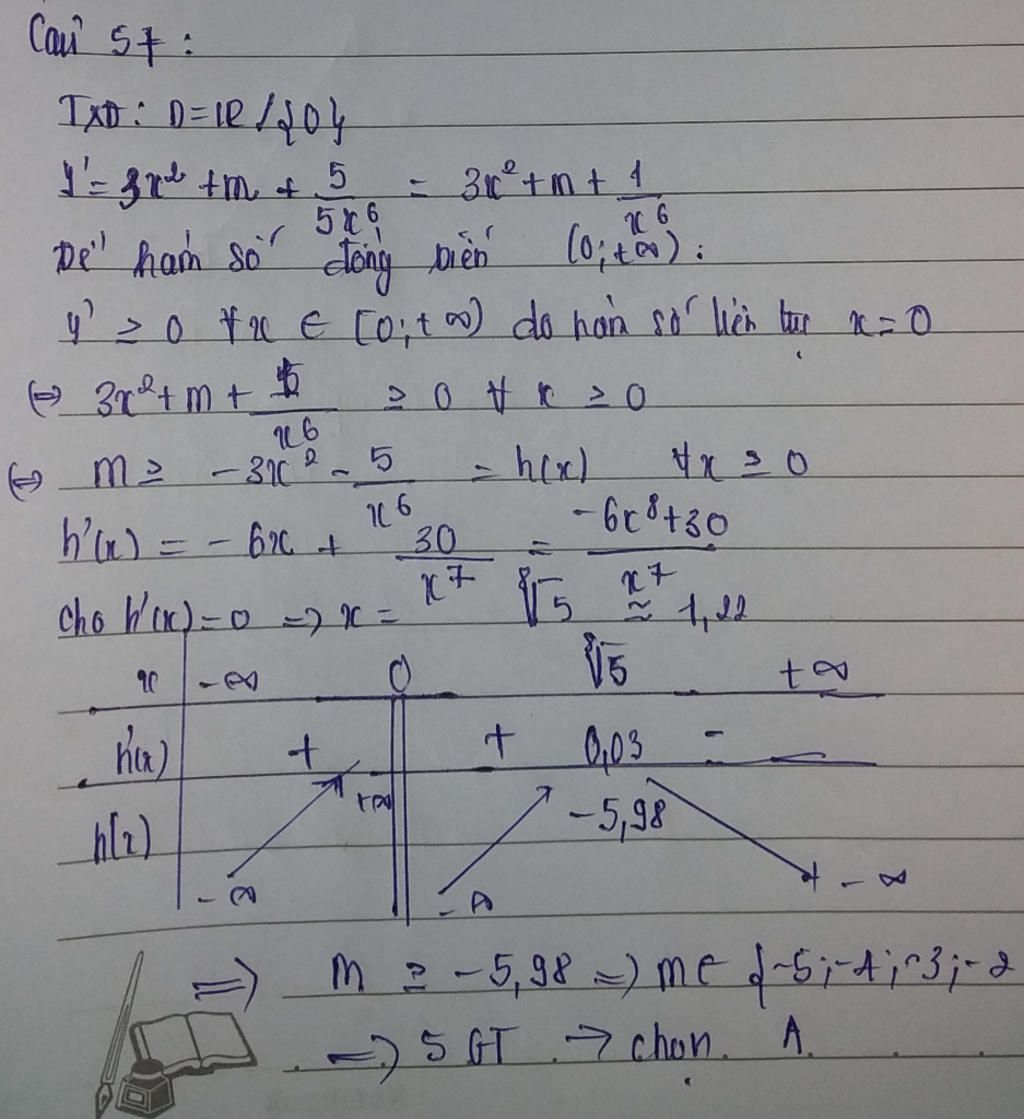 Câu 57:
TXĐ: D=R/{0}
y'= 3x² +m + 5/5x⁶ = 3x²+m+ 1/x⁶
Để hàm số đồng biến (0;+∞):
y' ≥ 0 ∀x ∈ [0;+∞) do hàm số liên tục x=0
⇔ 3x²+m+ /x⁶ ≥ 0 ∀ x ≥ 0
⇔ m ≥ -3x² - 5/x⁶ = h(x) ∀x ≥ 0
h'(x) = - 6x + 30/x⁷ = -6x⁸+30/x⁷
cho h'(x)=0 => x = ⁸√5 ≈ 1,22
x -∞ 0 ⁸√5 +∞
h'(x) + + 0,03 -
+∞ -5,98
h(x)
-∞ - -∞
=> m ≥ -5,98 => m∈ {-5;-4;-3;-2
=> 5 GT → chọn A.